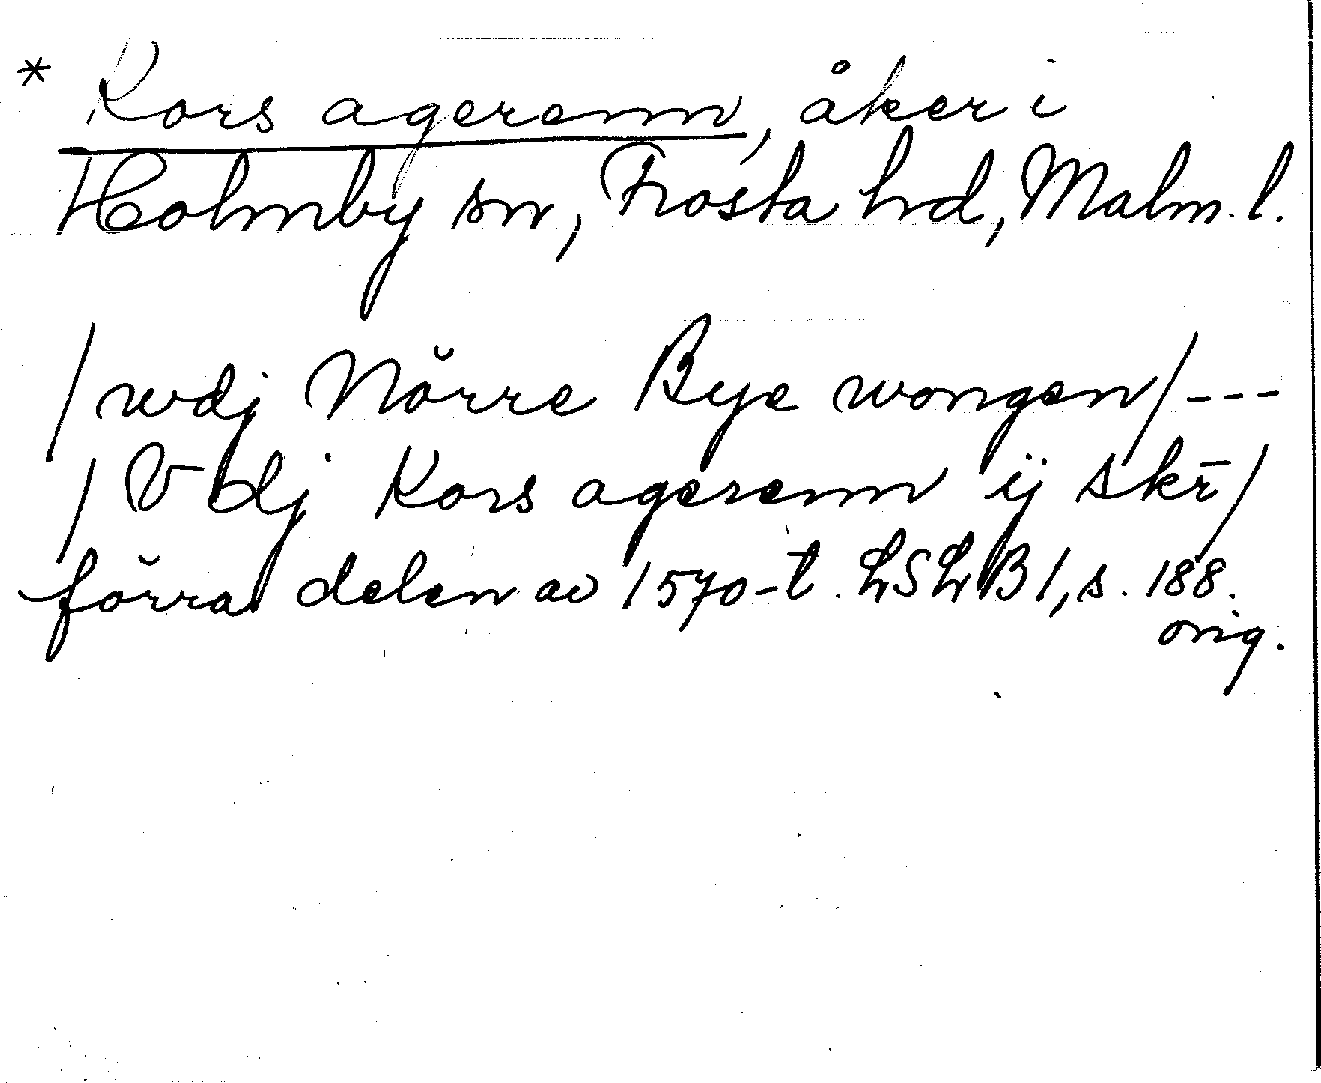 * Kors agerenn, åker i
Holmby sn, Frosta hd, Malm. l.
/wdj Nörre Bye wongen/---
/Vdj Kors agerenn ij skr̄/
förra delen av 1570-t. LSLB1, s. 188.
orig.